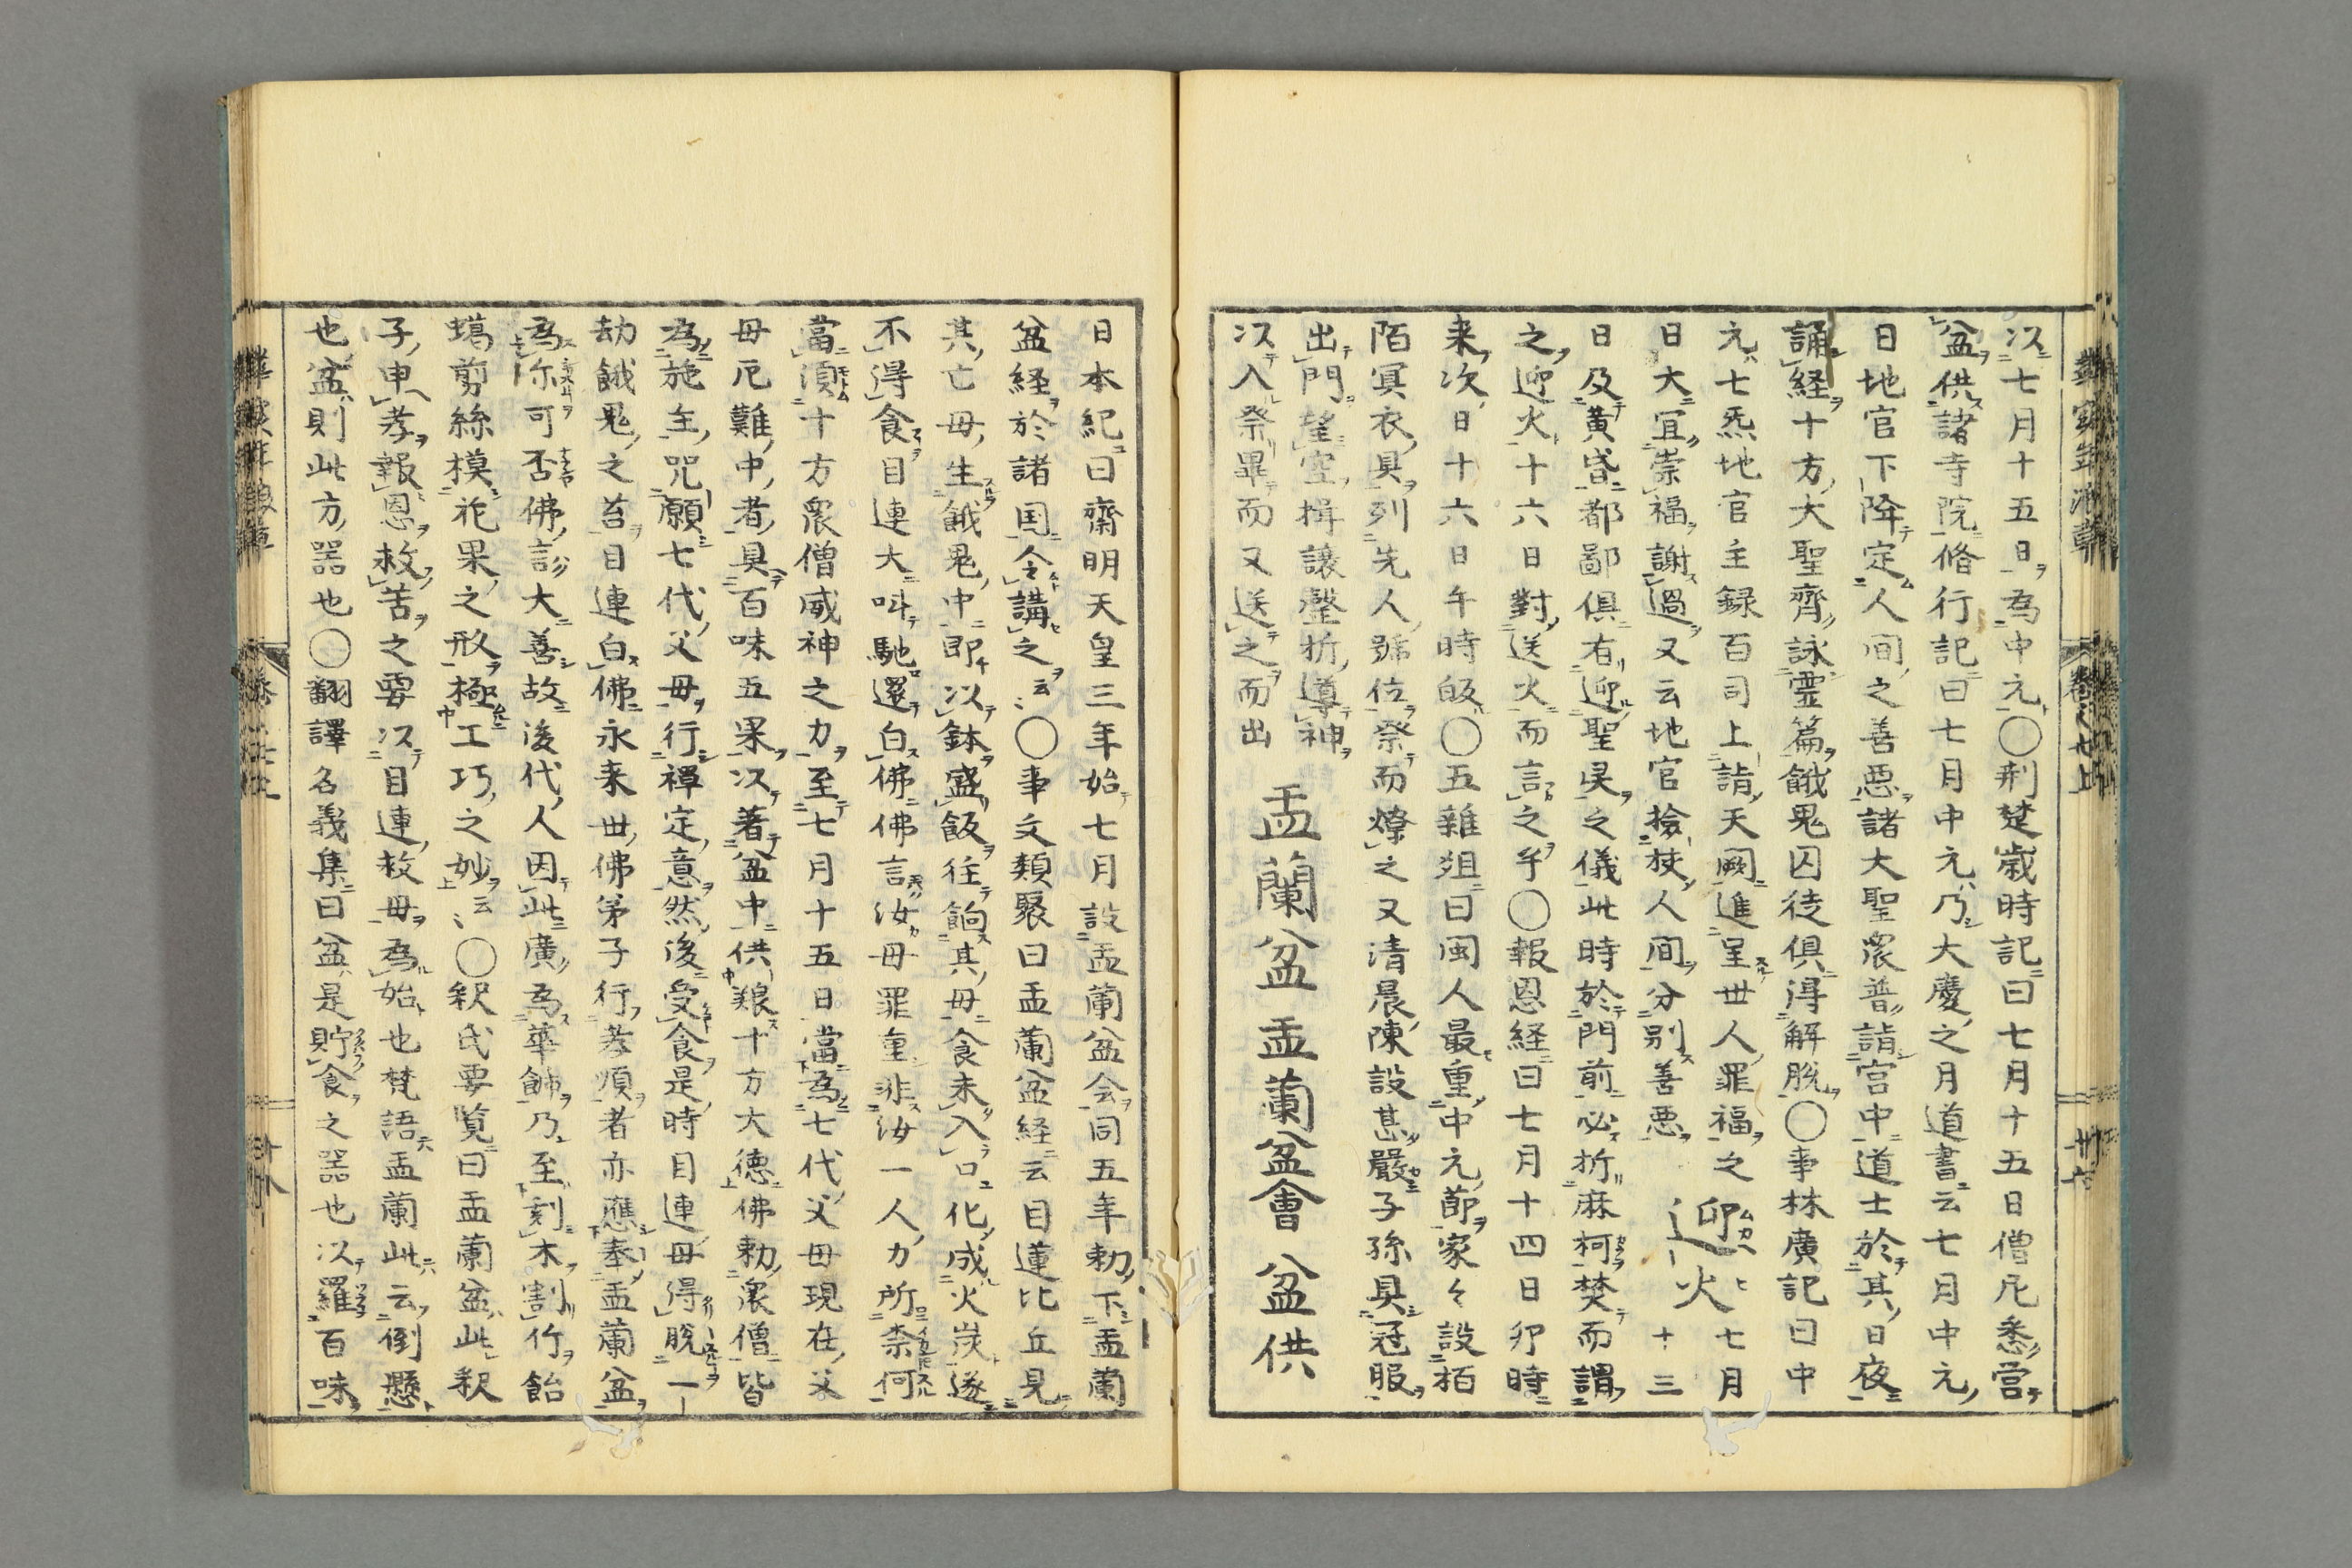 以七月十五日為中元○荆楚歳時記曰七月十五日僧尼悉営
盆供諸寺院脩行記曰七月中元乃大慶之月道書云七月中元
日地官下降定人间之善悪諸大聖衆普詣宮中道士於其日夜
誦経十方大聖齊詠霊篇餓鬼囚徒俱得解脱○事林廣記曰中
元七炁地官主録百司上詣天闕進呈丗人罪福之 迎火七月十三
日大冝崇福謝過又云地官撿挍人间分别善悪
日及黄昏都鄙俱右迎聖㚑之儀此時於門前必折麻柯焚而謂
之迎火十六日對送火而言之乎○報恩経曰七月十四日卯時
来次日十六日午時皈○五雜俎曰閩人最重中元節家々設栢
陌冥衣具列先人號位祭而燎之又清晨陳設甚嚴子孫具冠服
出門望空揖讓罄折導神
以入祭畢而又送之而出 盂蘭盆 盂蘭盆會 盆供
日本紀曰齋明天皇三年始七月設盂蘭盆会同五年勅下盂蘭
盆経於諸国令講之云〻○事文類聚曰盂蘭盆経云目蓮比丘見
其亡母生餓鬼中即以鉢盛飯徃餉其母食未入口化成火炭遂
不得食目連大叫馳還白佛佛言汝母罪重非汝一人力所柰何
當須十方衆僧威神之力至七月十五日當為七代父母現在父
母厄難中者具百味五果以著盆中供粮十方大徳佛勅衆僧皆
為施主咒願七代父母行禪定意然後受食是時目連母得脱一
劫餓鬼之苔目連白佛永来丗佛弟子行孝順者亦應奉盂蘭盆
為尓可否佛言大善故後代人因此廣為華飾乃至刻木割竹飴
蝋剪絲模花果之形極工巧之妙云〻○釈氏要覧曰盂蘭盆此釈
子申孝報恩救苦之要以目連救母為始也梵語盂蘭此云倒懸
也盆則此方器也○翻譯名義集曰盆是貯食之器也以羅百味